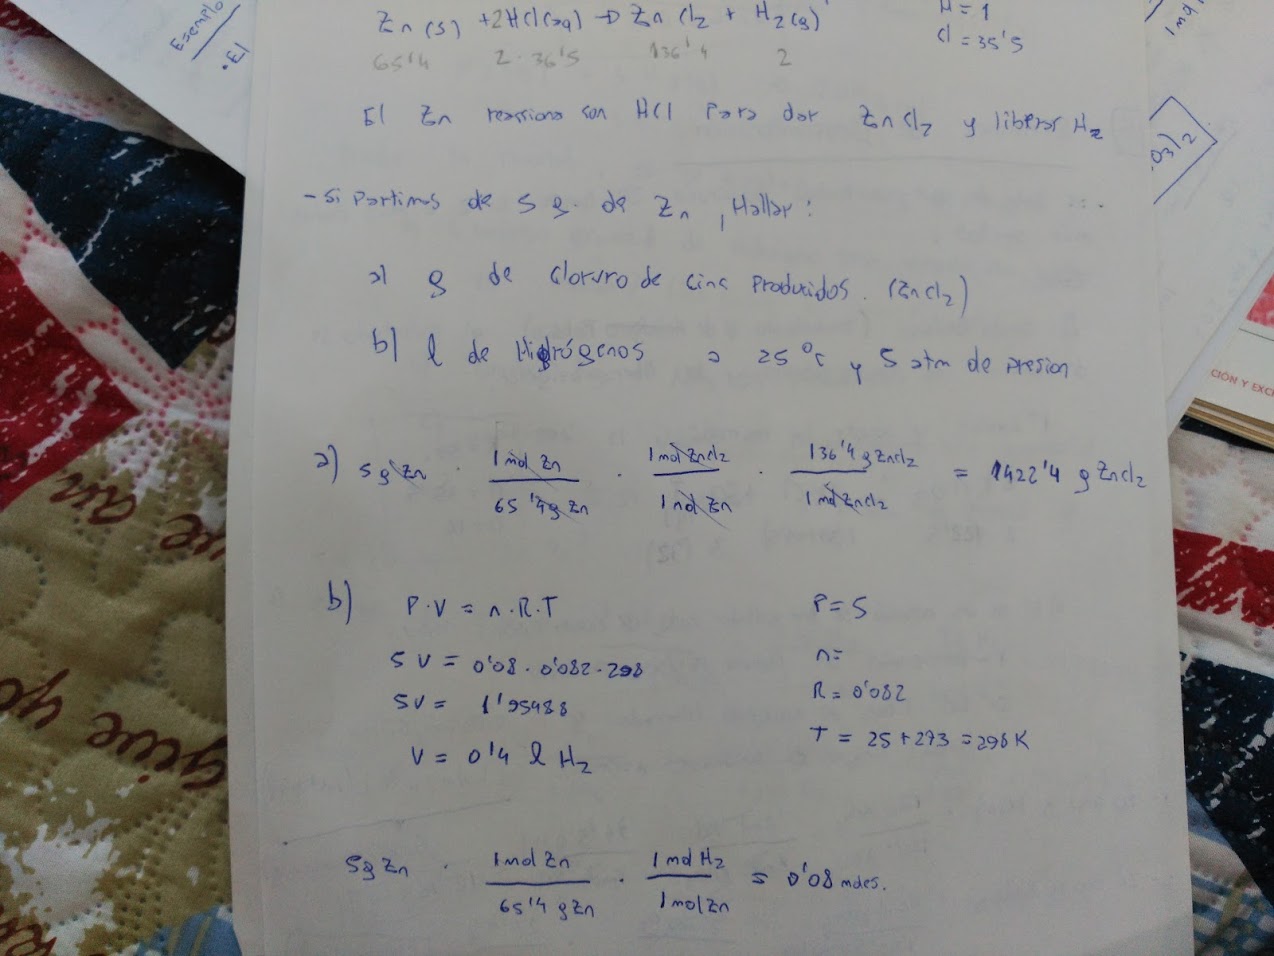 Ejemplo
• El
Zn(s) + 2HCl(aq) → ZnCl2 + H2(g)
65'4 2·36'5 136'4 2
H = 1
Cl = 35'5
1mol
El Zn reacciona con HCl para dar ZnCl2 y liberar H2
O3)2
- Si partimos de 5 g. de Zn, Hallar:
a) g de cloruro de cinc producidos. (ZnCl2)
b) l de Hidrógenos a 25 ºC y 5 atm de presion
CIÓN Y EXC
a) 5 g Zn · 1 mol Zn / 65'4 g Zn · 1 mol ZnCl2 / 1 mol Zn · 136'4 g ZnCl2 / 1 mol ZnCl2 = 1422'4 g ZnCl2
b) P·V = n·R·T
5 V = 0'08 · 0'082 · 298
5V = 1'95488
V = 0'4 l H2
P = 5
n =
R = 0'082
T = 25 + 273 = 298 K
5g Zn · 1 mol Zn / 65'4 g Zn · 1 mol H2 / 1 mol Zn = 0'08 moles.
give yo